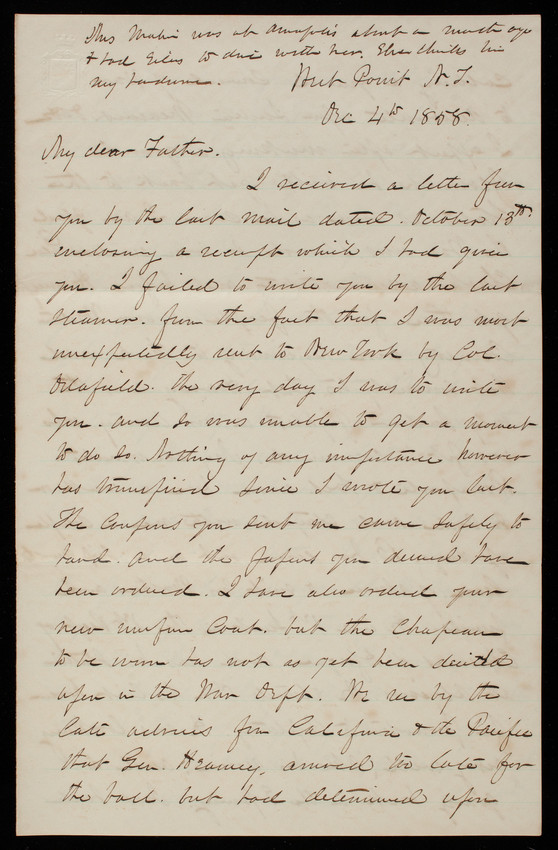 was at Annapolis about a month ago
& had Giles to dine with her. She thinks him
very handsome. West Point N.Y.
Dec 4th 1858.
My dear Father.
I received a letter from
you by the last mail dated. October 13th.
enclosing a receipt which I had given
you. I failed to write you by the last
steamer. from the fact that I was most
unexpectedly sent to New York by Col.
Delafield. the very day I was to write
you. and so was unable to get a moment
to do so. Nothing of any importance however
has transpired since I wrote you last.
The Coupons you sent me came safely to
hand. and the papers you desired have
been ordered. I have also ordered your
new uniform Coat. but the Chapeau
to be worn has not as yet been decided
upon in the War Dept. We see by the
late advices from California & the Pacific
that Gen. Harney, arrived too late for
the ball. but had determined upon